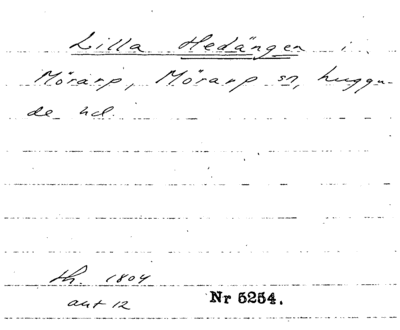 Lilla Hedängen i
Mörarp, Mörarp sn, Luggu-
de hd.
th. 1804
akt 12
Nr 5254.